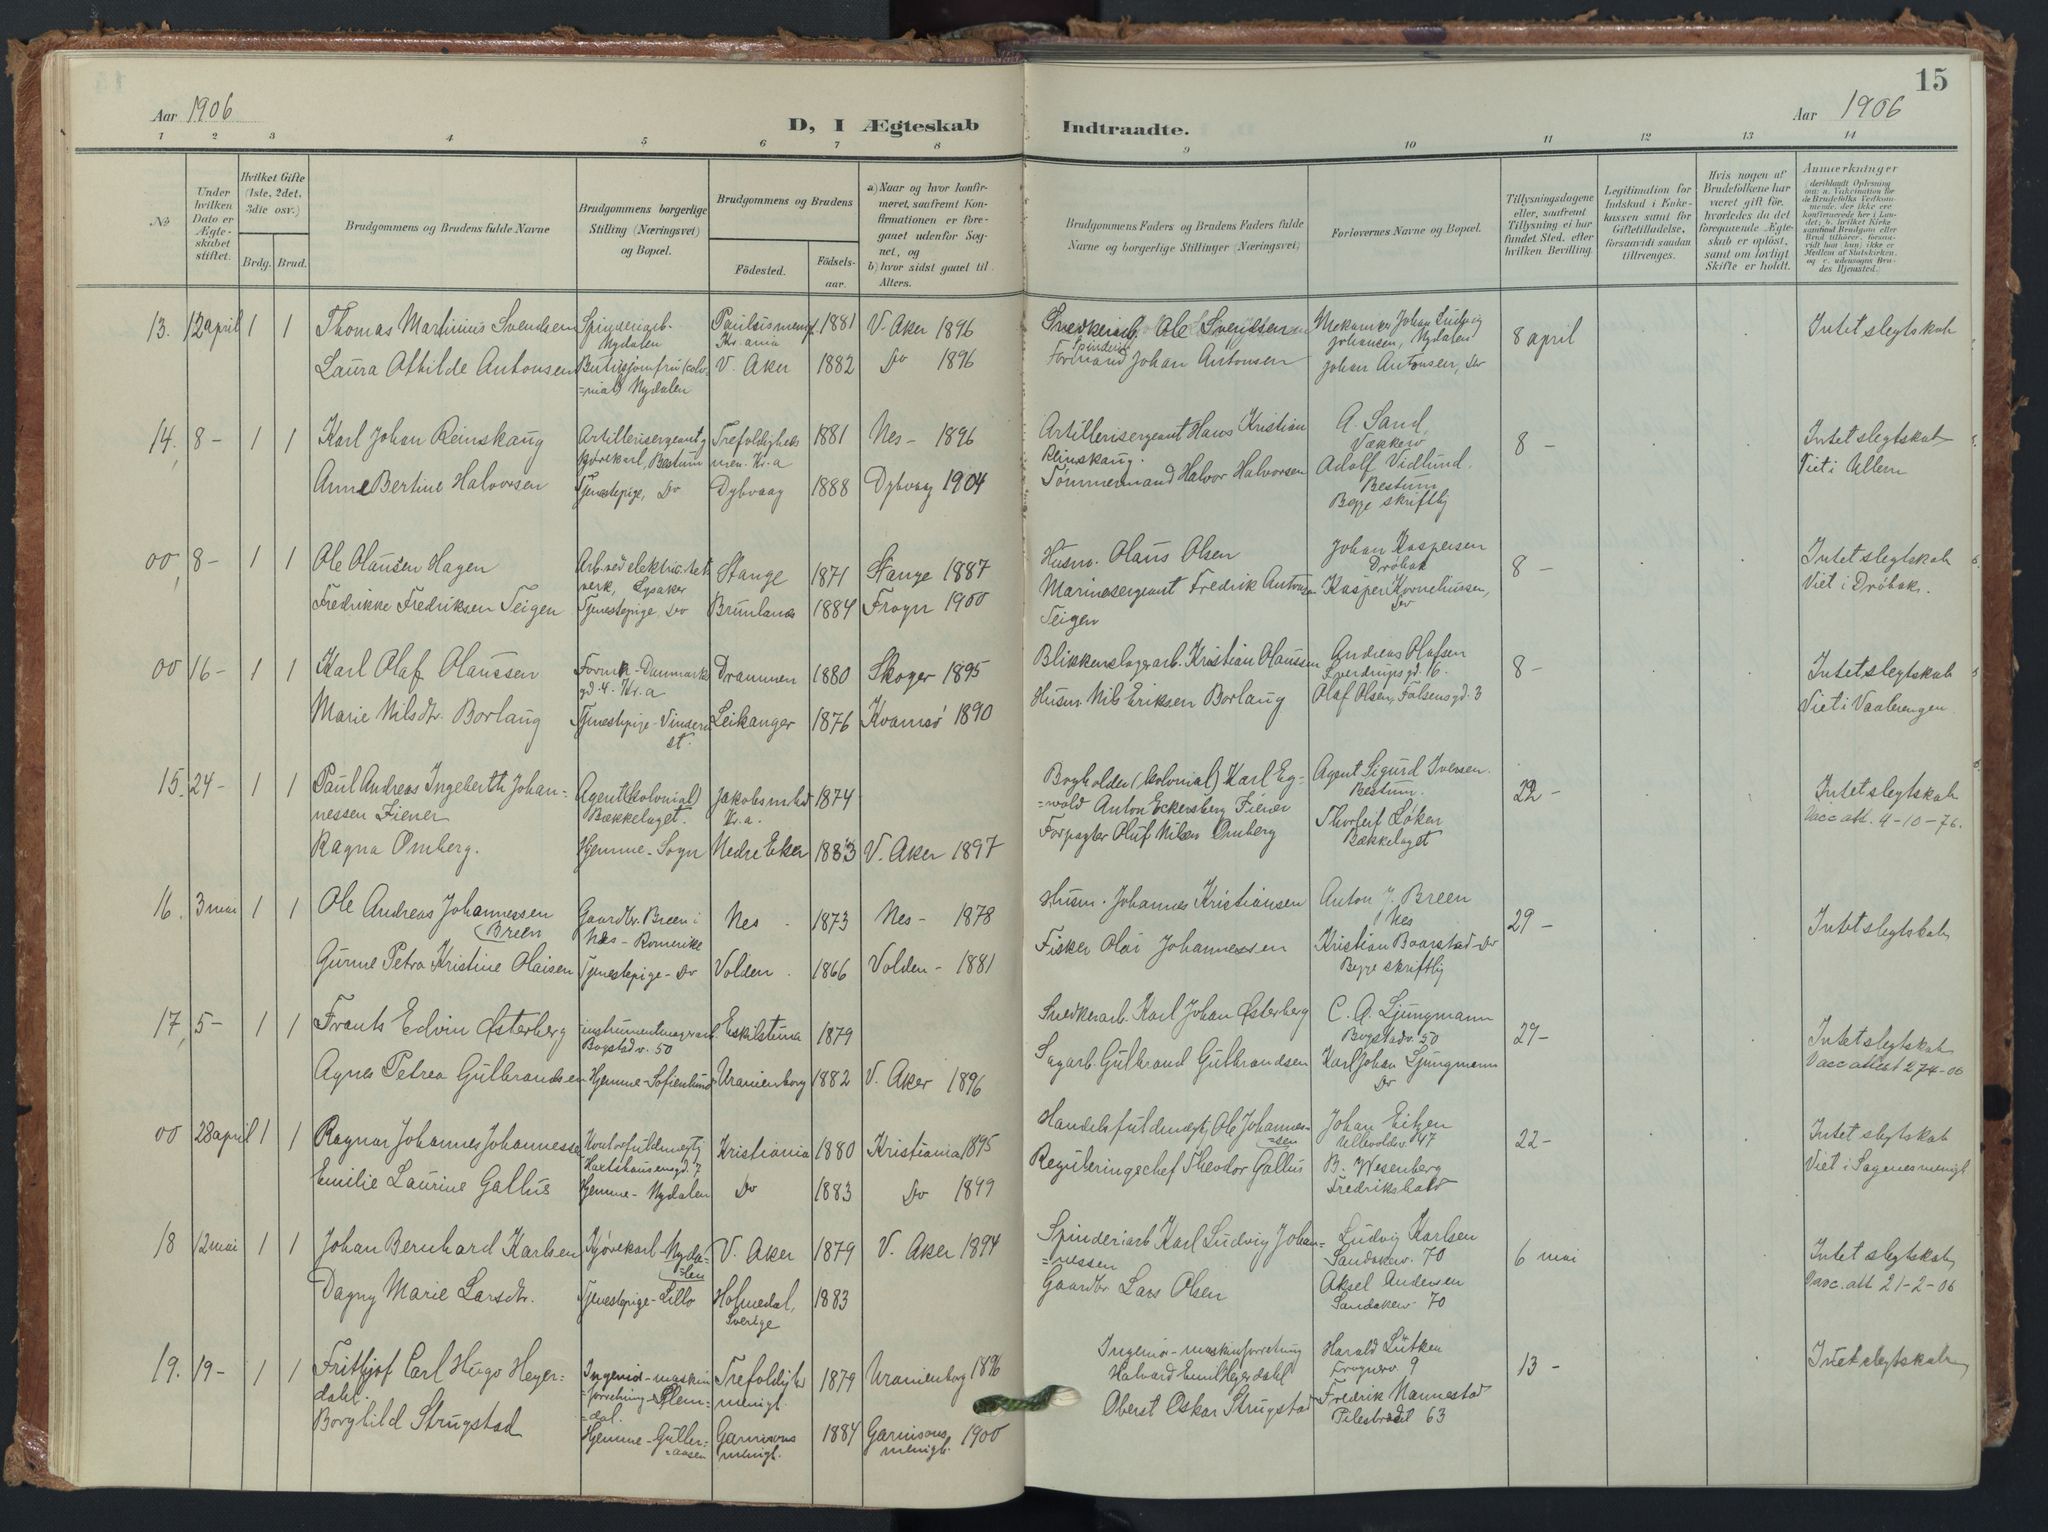 15
Aar 1906
D, I Ægteskab Indtraadte.
Aar 1906
1 2 3 4 5 6 7 8 9 10 11 12 13 14
No
Under hvilken Dato er Ægteskabet stiftet.
Hvilket Gifte (1ste, 2det, 3die osv.)
Brdg. Brud.
Brudgommens og Brudens fulde Navne
Brudgommens borgerlige Stilling (Næringsvei) og Bopæl.
Brudgommens og Brudens
Fødested. Fødselsaar.
a) Naar og hvor konfirmeret, saafremt Konfirmationen er foregaaet udenfor Sognet, og
b) hvor sidst gaaet til Alters.
Brudgommens Faders og Brudens Faders fulde Navne og borgerlige Stillinger (Næringsvei)
Forlovernes Navne og Bopæl.
Tillysningsdagene eller, saafremt Tillysning ei har fundet Sted, efter hvilken Bevilling.
Legitimation for Indskud i Enkekassen samt for Giftetilladelse, forsaavidt saadan tiltrænges.
Hvis nogen af Brudefolkene har været gift før, hvorledes da det foregaaende Ægteskab er opløst, samt om lovligt Skifte er holdt.
Anmerkninger
13. 12 april 1 1 Thomas Martinius Svendsen Spinderiarb. Nydalen Paulusmenigh. Kr.ania 1881 V. Aker 1896 Snedkeriarb. Ole Svendsen Johan Ludvig Johansen, Nydalen 8 april Intet slegtskab
Laura Athilde Antonsen Butiksjomfru (colonial) Nydalen V. Aker 1882 Do 1896 Spinderi Formand Johan Antonsen Johan Antonsen, Do
14, 8 - 1 1 Karl Johan Reinskaug Artillerisergeant, Kjørekarl, Bestum Trefoldigheds men. Kr.a 1881 Nes - 1896 Artillerisergeant Hans Kristian Reinskaug. A. Sand, Vækkerø 8 - Intet slegtskab Viet i Ullern
Anne Bertine Halvorsen Tjenestepige, Do Dybvaag 1888 Dybvaag 1904 Tømmermand Halvor Halvorsen Adolf Vidlund. Bestum Begge skriftlig
00, 8 - 1 1 Ole Olaussen Hagen Arb. ved elektricitetverk, Lysaker Stange 1871 Stange 1887 Husm. Olaus Olsen Johan Kaspersen Drøbak 8 - Intet slegtskab Viet i Drøbak.
Fredrikke Fredriksen Teigen Tjenestepige, Do Brunlanes 1884 Frogn 1900 Marinesergeant Fredrik Antonsen Teigen Kasper Korneliussen, Do
00 16 - 1 1 Karl Olaf Olaussen Danmarks gd. 4. Kr.a Drammen 1880 Skoger 1895 Blikkenslagerarb. Kristian Olaussen Andreas Olafsen Sverdrupsgd. 16. 8 - Intet slegtskab Viet i Vaalerengen.
Marie Nilsdtr. Borlaug Tjenestepige - Vinderen st. Leikanger 1876 Kvamsø 1890 Husm. Nils Eriksen Borlaug Olaf Olsen, Falsensgd. 3
15. 24 - 1 1 Paul Andreas Ingebreth Johannessen Fiener Agent (kolonial) Bækkelaget. Jakobs mhd Kr.a. 1874 Bogholder (kolonial) Karl Egwald Anton Eckersberg Fiener Agent Sigurd Iversen. Bestum. 22 - Intet slegtskab Vacc att. 4-10-76.
Ragna Omberg. Hjemme - Sogn Nedre Eker 1883 V. Aker 1897 Forpagter Oluf Nilsen Omberg Thorleif Løken Bækkelaget
16. 3 mai 1 1 Ole Andreas Johannessen Breen Gaardbr. Breen i Nes - Romerike Nes 1873 Nes - 1878 Husm. Johannes Kristiansen Anton J. Breen Nes 29 - Intet slegtskab
Gurine Petra Kristine Olaisen Tjenestepige - Do Volden 1866 Volden - 1881 Fisker Olai Johannessen Kristian Baarstad - Do Begge skriftlig
17, 5 - 1 1 Frants Edvin Østerberg instrumentmagerarb. Bogstadv. 50 Eskilstuna 1879 Snedkerarb. Karl Johan Østerberg C. A. Ljungmann Bogstadv. 50 29 - Intet slegtskab Vacc attest 27/4-06
Agnes Petrea Gulbrandsen Hjemme - Sofienlund Uranienborg 1882 V. Aker 1896 Sagarb. Gulbrand Gulbrandsen Karl Johan Ljungmann Do
00 28 april 1 1 Ragnar Johannes Johannessen Kontorfuldmegtig 7 Kristiania 1880 Kristiania 1895 Handelsfuldmegt. Ole Johannessen Johan Eitzen Ullevoldsv. 47 22 - Intet slegtskab Viet i Sagenes menigh.
Emilie Laurine Gallus Hjemme - Nydalen Do 1883 Do 1899 Reguleringschef Theodor Gallus B. Wesenberg Fredrikshald
18 12 mai 1 1 Johan Bernhard Karlsen Kjørekarl - Nydalen V. Aker 1879 V. Aker 1894 Spinderiarb Karl Ludvig Johannessen Ludvig Karlsen Sandakerv. 70 6 mai Intet slegtskab Vacc. att 21-2-06
Dagny Marie Larsdtr. Tjenestepige - Lillo Holmedal, Sverige 1883 Gaardbr Lars Olsen Aksel Andersen Sandakerv. 70
19. 19 - 1 1 Frithjof Carl Hugo Heyerdahl Ingeniør - maskinforretning - Slemdal. Trefoldigh menigh. 1879 Uranienborg 1896 Ingeniør - maskinforretning Halvard Emil Heyerdahl Harald Lütken Frognerv. 9 13 - Intet slegtskab
Borghild Strugstad Hjemme - Gulleraasen Garnisons menigh. 1884 Garnisons menigh. 1900 Oberst Oskar Strugstad Fredrik Nannestad Pilestrædet 63